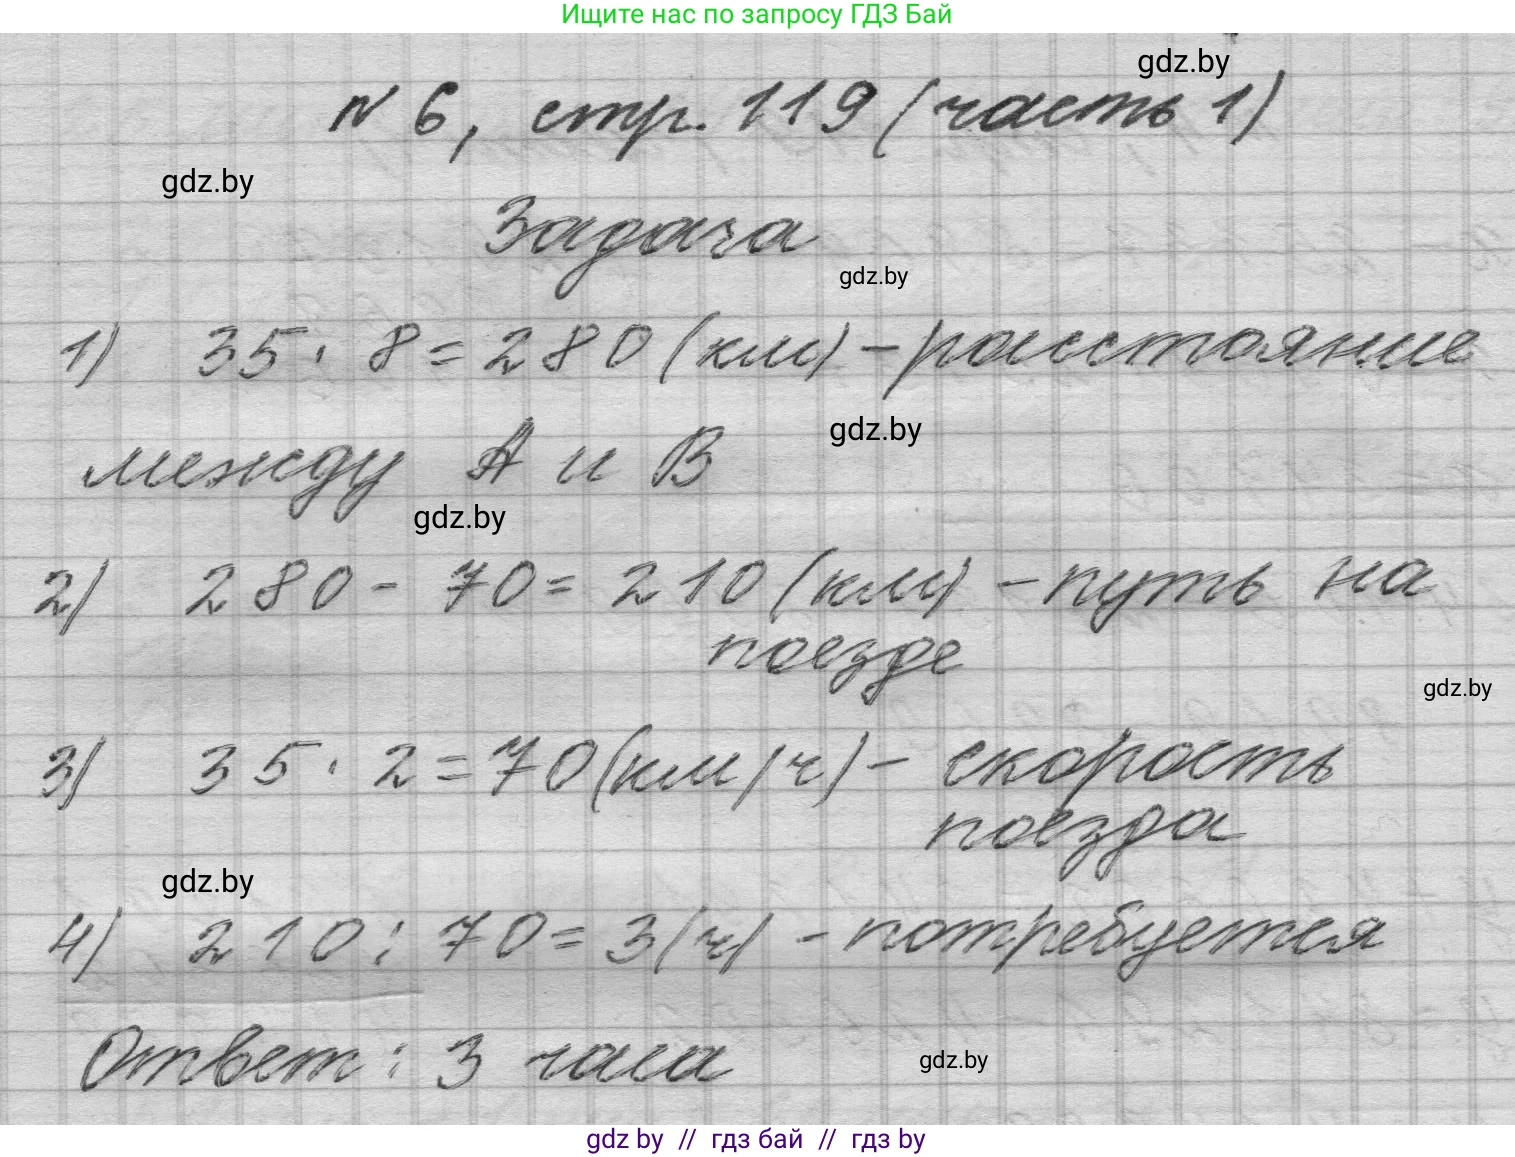 Ищите нас по запросу ГДЗ Бай
gdz.by
№ 6, стр. 119 (часть 1)
gdz.by
Задача
gdz.by
1) 35 · 8 = 280 (км) – расстояние
gdz.by
между А и В
gdz.by
2) 280 - 70 = 210 (км) – путь на
поезде
gdz.by
3) 35 · 2 = 70 (км/ч) – скорость
поезда
gdz.by
4) 210 : 70 = 3 (ч) – потребуется
Ответ : 3 часа
gdz.by
gdz by // гдз бай // гдз by